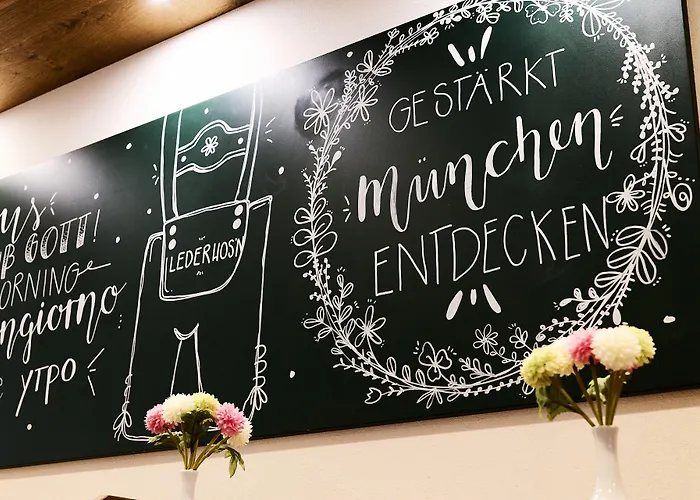 us
ß GOTT!
ORNING
ngiorno
утро
LEDERHOSN
GESTÄRKT
München
ENTDECKEN